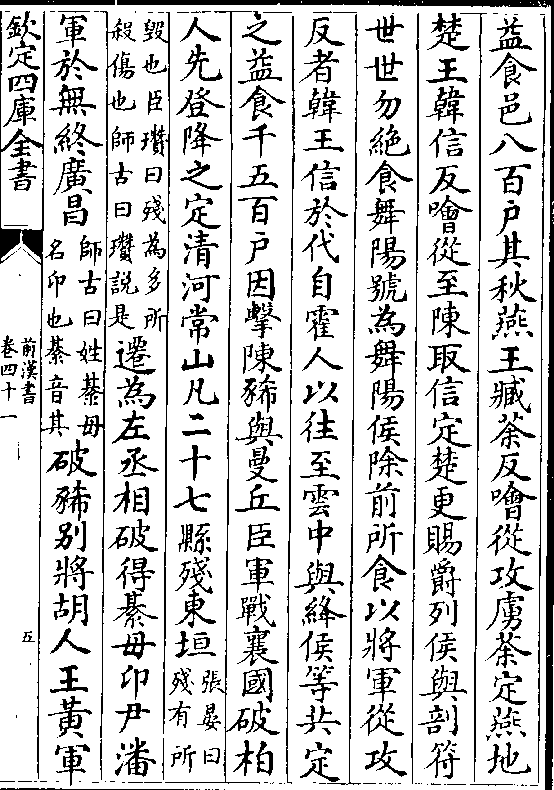 益食邑八百户其秋燕王臧荼反噲從攻虜荼定燕地
楚王韓信反噲從至陳取信定楚更賜爵列侯與剖符
世世勿絶食舞陽號為舞陽侯除前所食以將軍從攻
反者韓王信於代自霍人以往至雲中與絳侯等共定
之益食千五百户因擊陳豨與曼丘臣軍戰襄國破柏
人先登降之定清河常山凡二十七縣殘東垣張晏曰殘有所
毁也臣瓚曰殘為多所殺傷也師古曰瓚說是遷為左丞相破得綦毋卬尹潘
軍於無終廣昌師古曰姓綦毋名卬也綦音其破豨别將胡人王黄軍
欽定四庫全書
前漢書
卷四十一
五